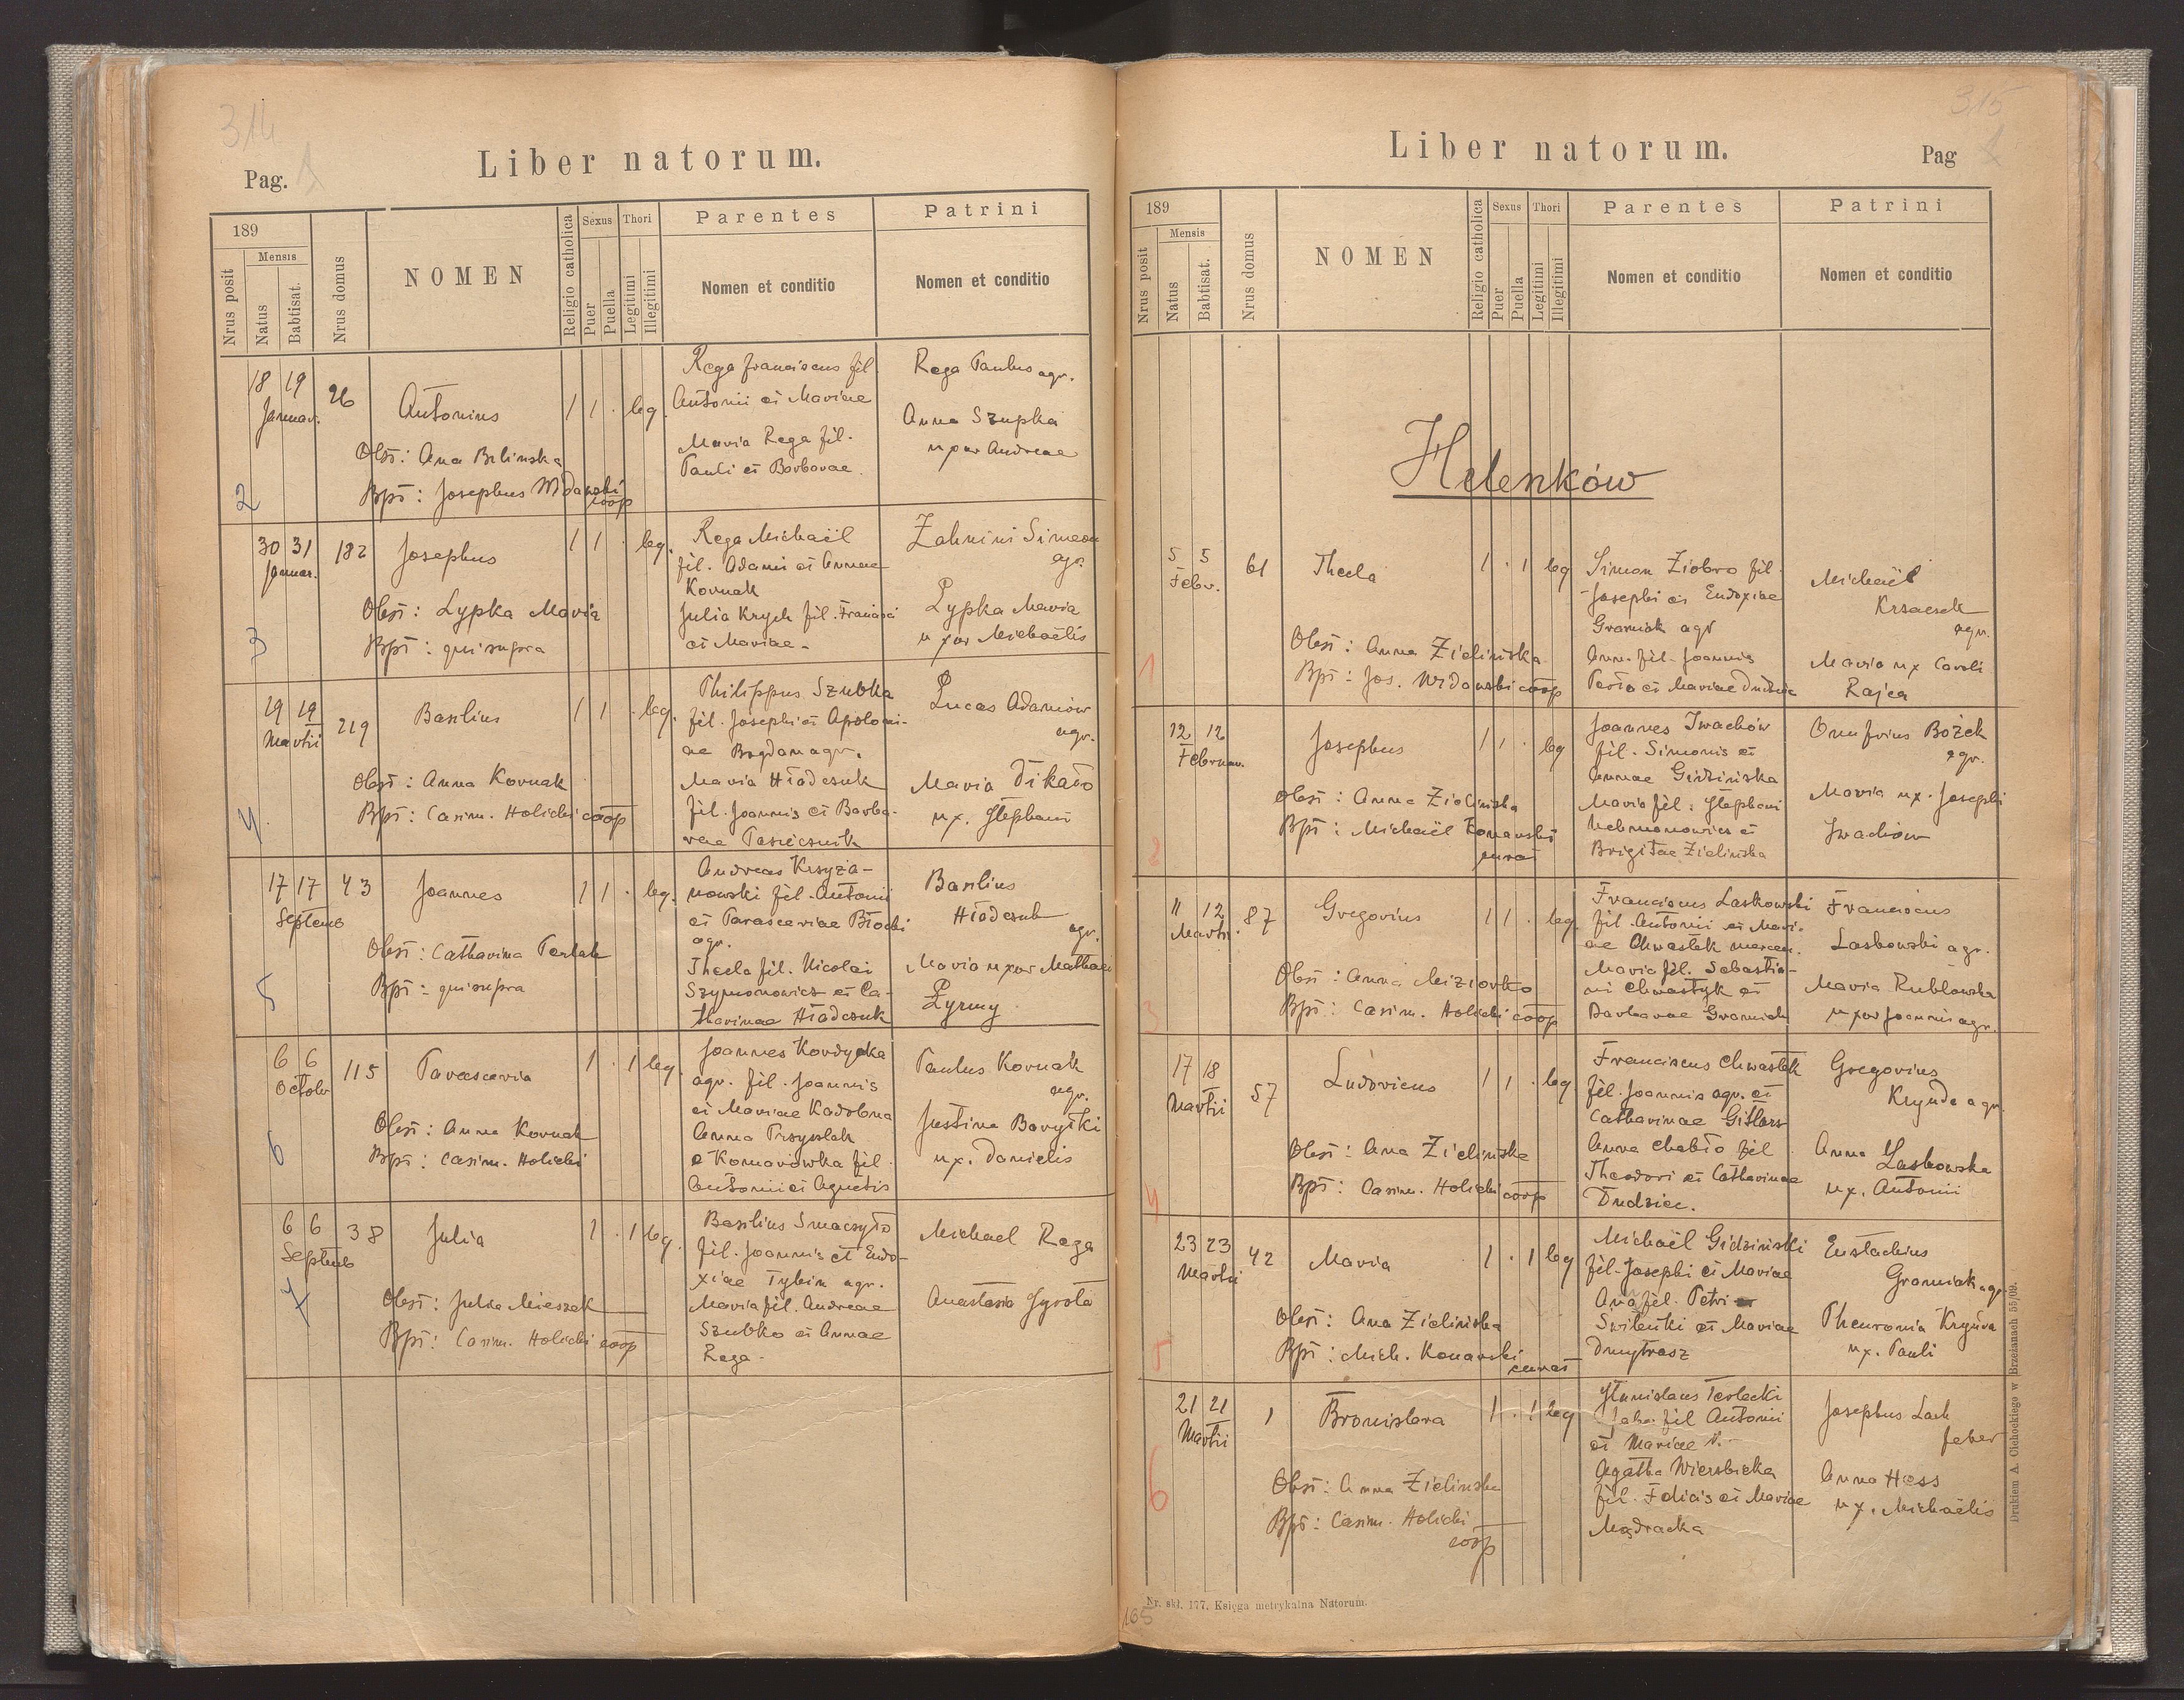 314
Pag. 1
Liber natorum.
189
Nrus posit
Mensis
Natus
Babtisat.
Nrus domus
NOMEN
Religio catholica
Sexus
Puer
Puella
Thori
Legitimi
Illegitimi
Parentes
Nomen et conditio
Patrini
Nomen et conditio
18 19 26 Antonius 1 1 . leg.
Januar.
Obst: Ana Bilinska
Bpt: Josephus Wdowski
coop
2
Rega Franciscus fil
Antonii et Mariae
Maria Rega fil.
Pauli et Barbarae.
Rega Paulus agr.
Anna Szupka
uxor Andreae
30 31 182 Josephus 1 1 . leg.
Januar.
Obst: Lypka Maria
Bpt: qui supra
3
Rega Michaël
fil. Adami et Annae
Kornak
Julia Krych fil. Francisci
et Mariae.
Simeon
agr.
Lypka Maria
uxor Michaëlis
19 19 219 Basilius 1 1 . leg.
Martii
Obst: Anna Kornak
Bpt: Casim. Holicki coop
4.
Philippus Szubka
fil. Josephi et Apoloni-
ae Bogdan agr.
Maria Hładczuk
fil. Joannis et Barba-
rae Pasiecznik
Lucas Adamow
agr.
Maria Dikało
ux. Stephani
17 17 43 Joannes 1 1 . leg.
Septemb
Obst: Catharina Perlak
Bpt: qui supra
5
Andreas Krzyża-
nowski fil. Antonii
et Parasceviae Błocki
agr.
Thecla fil. Nicolai
Szymonowicz et Ca-
tharinae Hładczuk
Basilius
Hładczuk
agr.
Maria uxor Mathaei
Żyrmy
6 6 115 Parascevia 1 . 1 leg.
Octobr
Obst: Anna Kornak
Bpt: Casim. Holicki
6
Joannes Kordycka
agr. fil. Joannis
et Mariae Kadobna
Anna Przyszlak
e Komarówka fil.
Antonii et Agnetis
Paulus Kornak
agr.
Justina Baryłki
ux. Danielis
6 6 38 Julia 1 . 1 leg.
Septemb
Obst: Julia Mieszek
Bpt: Casim. Holicki coop
7
Basilius Smaczyło
fil. Joannis et Eudo-
xiae Tybin agr.
Maria fil. Andreae
Szubko et Annae
Rega.
Michael Rega
Anastasia Gyrota
315
Liber natorum.
Pag 1
189
Nrus posit
Mensis
Natus
Babtisat.
Nrus domus
NOMEN
Religio catholica
Sexus
Puer
Puella
Thori
Legitimi
Illegitimi
Parentes
Nomen et conditio
Patrini
Nomen et conditio
Helenków
5 5 61 Thecla 1 . 1 leg
Febr.
Obst: Anna Zielińska
Bpt: Jos. Wdowski coop
1
Simon Ziobro fil.
Josephi et Eudoxiae
Gramiak agr
Anna fil. Joannis
et Mariae
Michaël
Krzaczek
agr.
Maria ux Caroli
Rajca
12 12 Josephus 1 1 . leg
Februar.
Obst: Anna Zielinska
Bpt: Michaël Konarski
curat
2
Joannes Iwachów
fil. Simonis et
Annae Gidzińska
Maria fil. Stephani
et
Brigitae Zielinska
Onufrius Bożek
agr.
Maria ux. Josephi
Iwachów
11 12 87 Gregorius 1 1 . leg
Martii.
Obst: Anna Miziołko
Bpt: Casim. Holicki coop
3
Franciscus Laskowski
fil. Antonii et Mari-
ae Chwastek mercen.
Maria fil. Sebastia-
ni Chwastyk et
Barbarae Gramiak
Franciscus
Laskowski agr.
Maria Rublowska
uxor Joannis agr.
17 18 57 Ludovicus 1 1 . leg
Martii
Obst: Ana Zielinska
Bpt: Casim. Holicki coop
4
Franciscus Chwastek
fil. Joannis agr. et
Catharinae Gitlars
Anna Chabło fil
Theodori et Catharinae
Dudziec.
Gregorius
Krynda agr.
Anna Laskowska
ux. Antonii
23 23 42 Maria 1 . 1 leg
Martii
Obst: Ana Zielińska
Bpt: Mich. Konarski
curat
5
Michaël Gidziński
fil. Josephi et Mariae
Ana fil. Petri
Switenki et Mariae
Dmytrasz
Eustachius
Gramiak agr.
Pheuronia Krynda
ux. Pauli
21 21 1 Bronislava 1 . 1 leg
Martii
Obst: Anna Zielinska
Bpt: Casim. Holicki
coop
6
Stanislaus Terlecki
faber fil Antonii
et Mariae N.
Agatha Wierzbicka
fil. Felicis et Mariae
Mądracka
Josephus Lach
faber
Anna Hess
ux. Michaëlis
Nr. skł. 177. Księga metrykalna Natorum.
165
Drukiem A. Cichockiego w Brzeżanach 55/09.